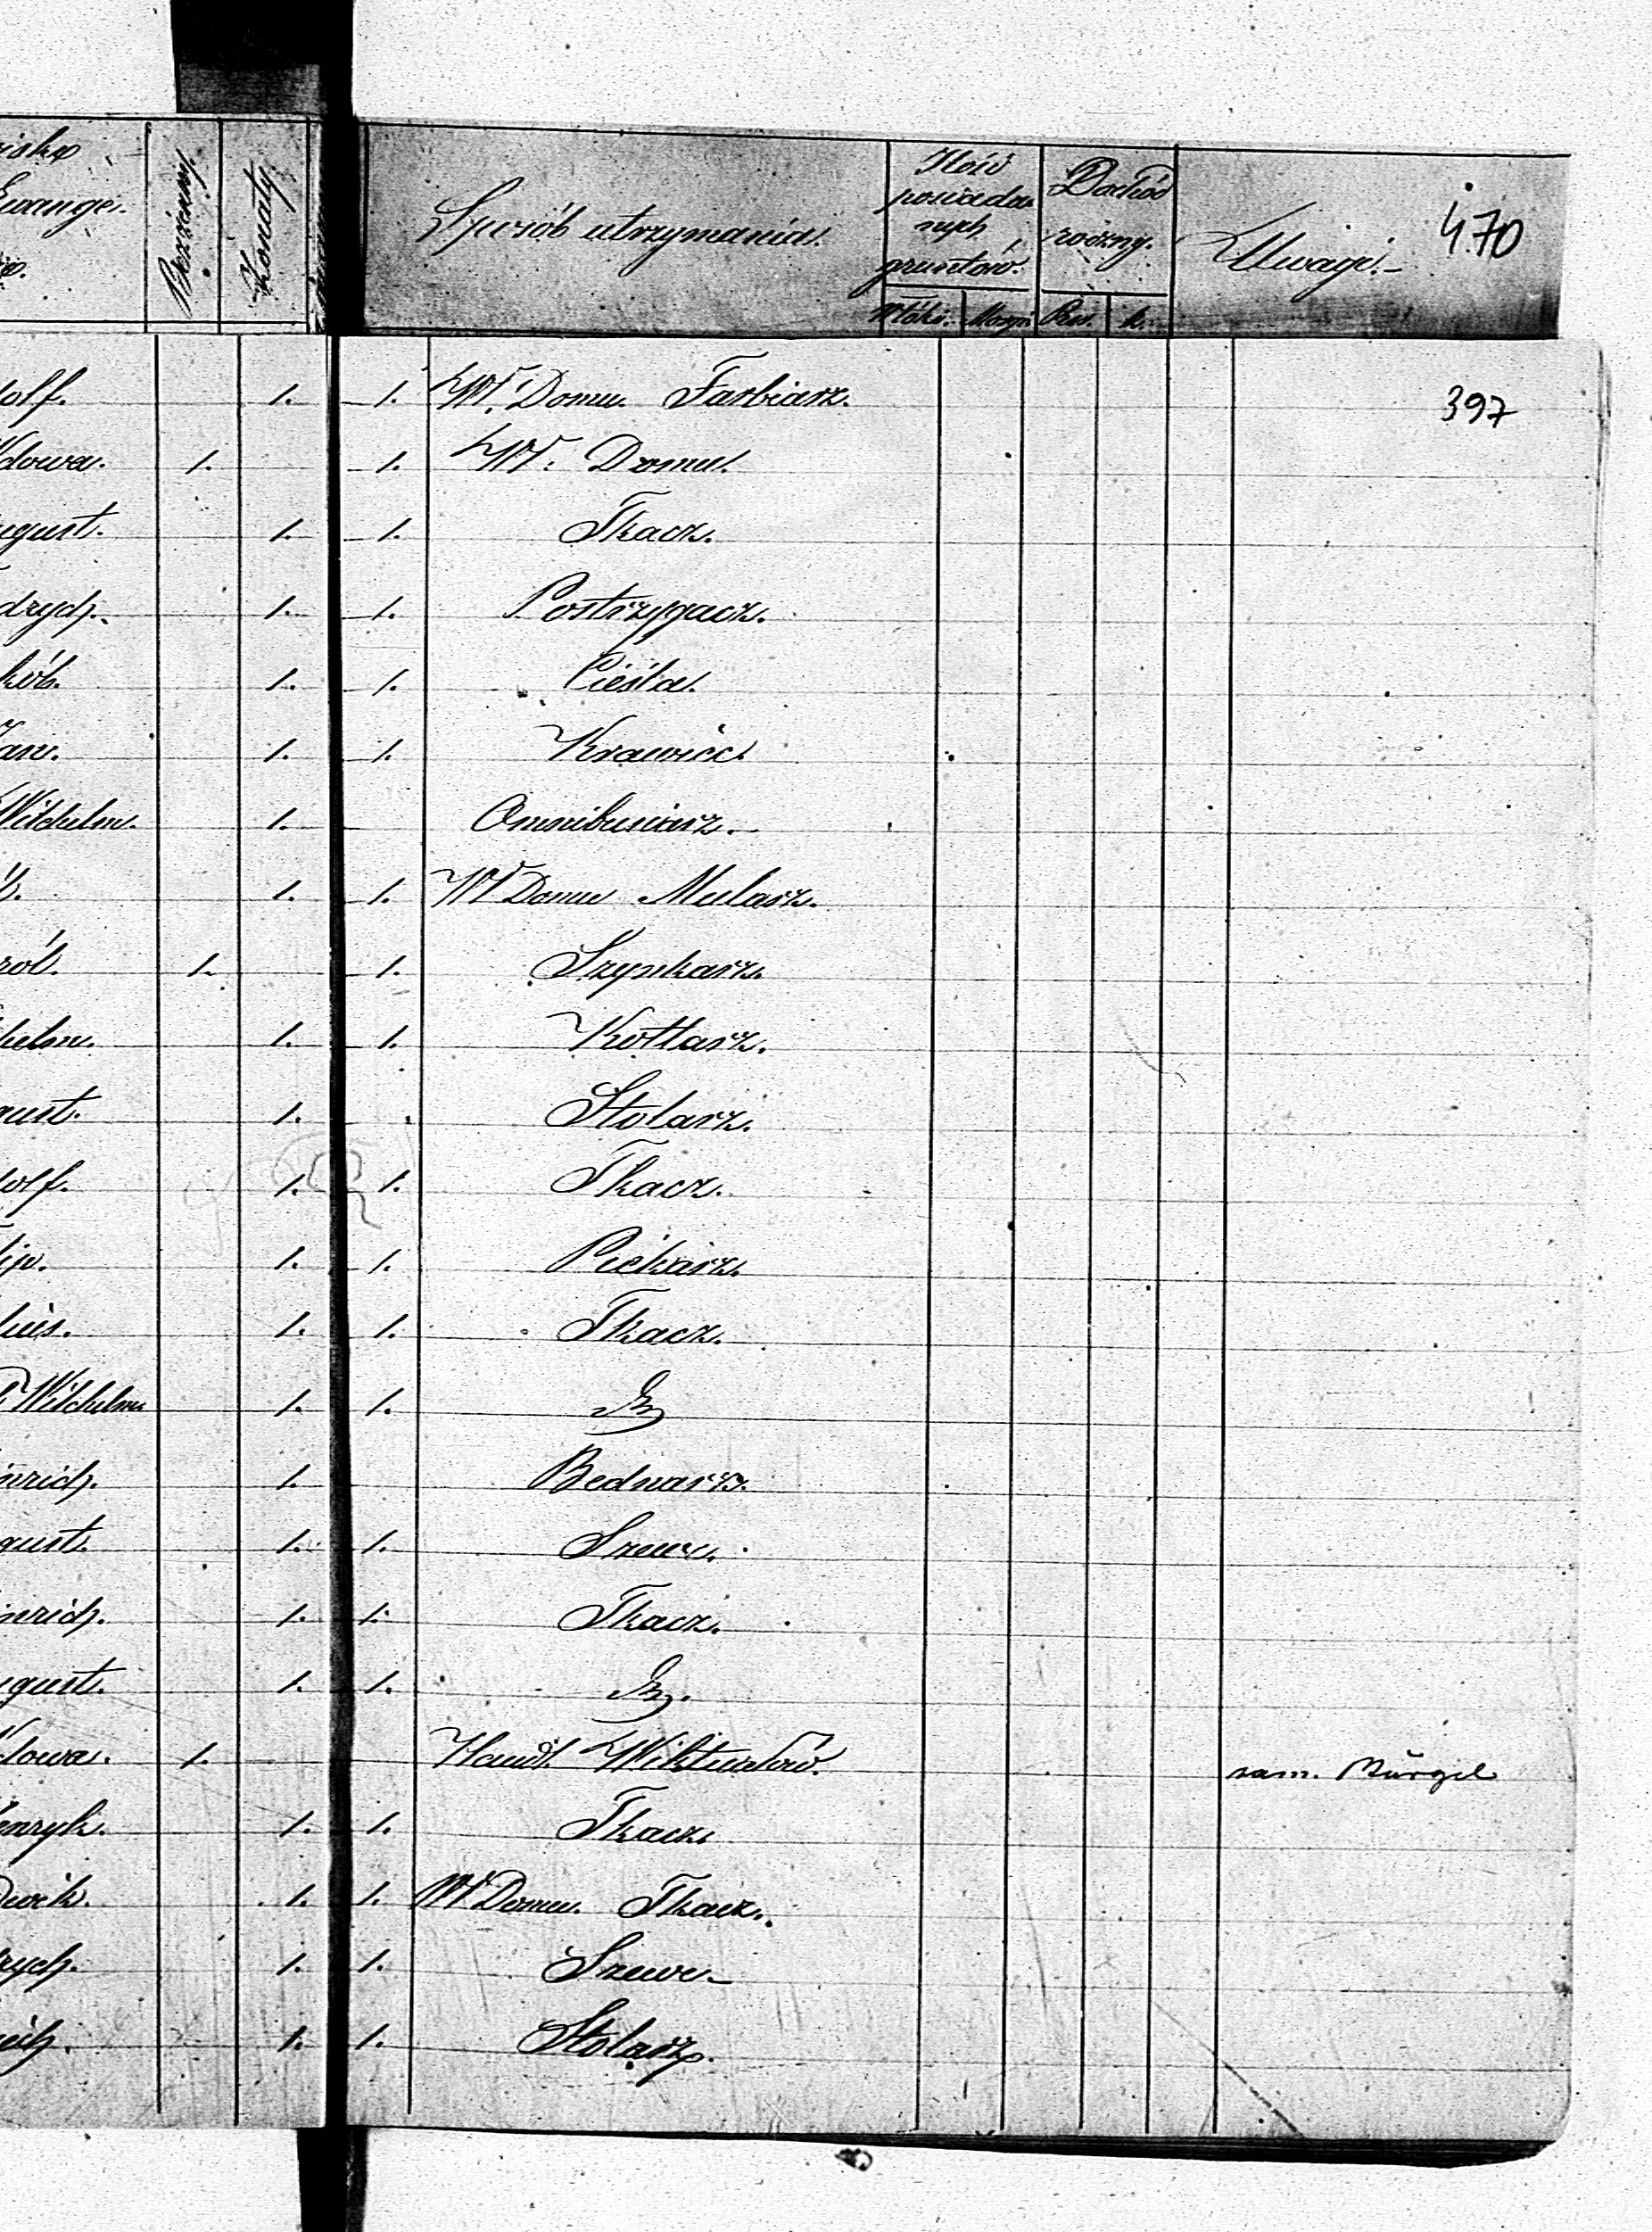 isko
Ewange-
Bezżenny.
Żonaty
Sposób utrzymania.
Ilość posiadanych gruntów.
Włóki. Morgi
Dochód roczny.
Rsr. k.
Uwagi.- 470
olf. 1. 1. Wł. Domu. Farbiarz. 397
dowa. 1. 1. Wł. Domu.
ugust. 1. 1. Tkacz.
drych. 1. 1. Postrzygacz.
kób. 1. 1. Cieśla.
Jan. 1. 1. Krawiec
Wilchelm. 1. Omnibusiarz.
1. 1. Wł Domu Mularz.
rol. 1. 1. Szynkarz.
helm. 1. 1. Kotlarz.
gust. 1. Stolarz.
olf. 1. 1. Tkacz.
lip. 1. 1. Piekarz.
lius. 1. 1. Tkacz.
Wilchelm 1. 1.
nrich. 1. Bednarz.
gust. 1. 1. Szewc.
nrich. 1. 1. Tkacz.
ugust. 1. 1.
dowa. 1. Handl. Wiktuałów. zam. Bürgel
enryk. 1. 1. Tkacz
dwik. 1. 1. Wł Domu. Tkacz.
rych. 1. 1. Szewc-
1. 1. Stolarz.